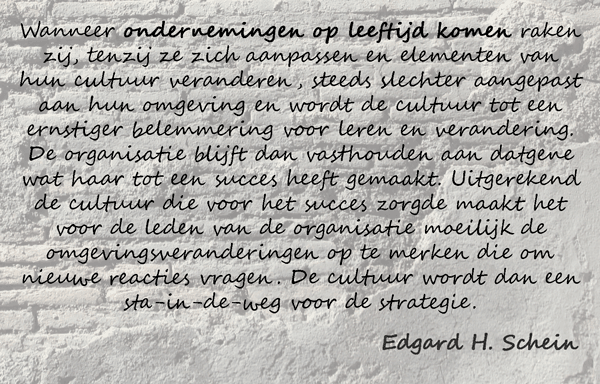 Wanneer ondernemingen op leeftijd komen raken
zij, tenzij ze zich aanpassen en elementen van
hun cultuur veranderen, steeds slechter aangepast
aan hun omgeving en wordt de cultuur tot een
ernstiger belemmering voor leren en verandering.
De organisatie blijft dan vasthouden aan datgene
wat haar tot een succes heeft gemaakt. Uitgerekend
de cultuur die voor het succes zorgde maakt het
voor de leden van de organisatie moeilijk de
omgevingsveranderingen op te merken die om
nieuwe reacties vragen. De cultuur wordt dan een
sta-in-de-weg voor de strategie.
Edgard H. Schein